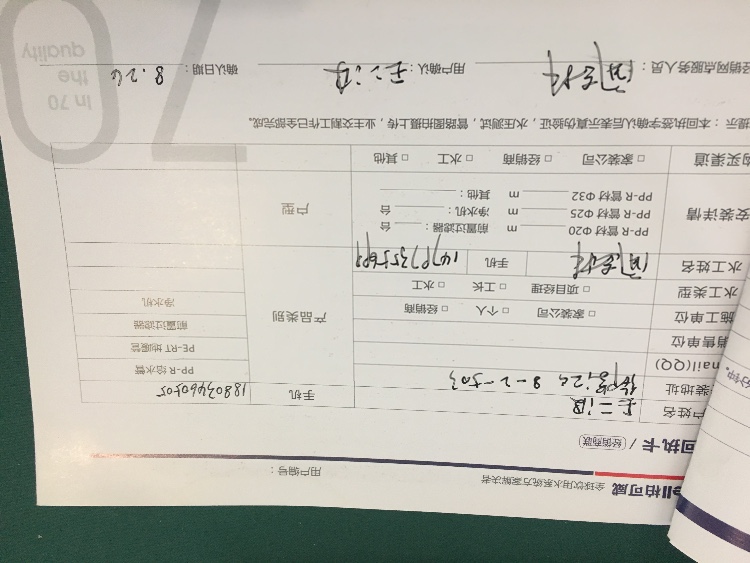 ell柏可威 全球饮用水系统方案解决者
用户编号：
回执卡 / 经销商联
户姓名 王二汉 手机 18803460505
装地址 8-2-503 产品类别 PP-R 给水管
mail(QQ) PE-RT 地暖管
销售单位 前置过滤器
施工单位 □ 家装公司 □ 个人 □ 经销商 净水机
水工类型 □ 项目经理 □ 工长 □ 水工
水工姓名 手机
安装详情 PP-R 管材 Φ20 m 前置过滤器： 台 户型
PP-R 管材 Φ25 m 净水机： 台
PP-R 管材 Φ32 m 其他：
购买渠道 □ 家装公司 □ 经销商 □ 水工 □ 其他
提示：本回执签字确认后表示真伪验证，水压测试，管路图拍摄上传，业主交割工作已全部完成。
经销网点服务人员： 用户确认： 王二汉 确认日期： 8.26
In 70
the
quality
70
分钟。